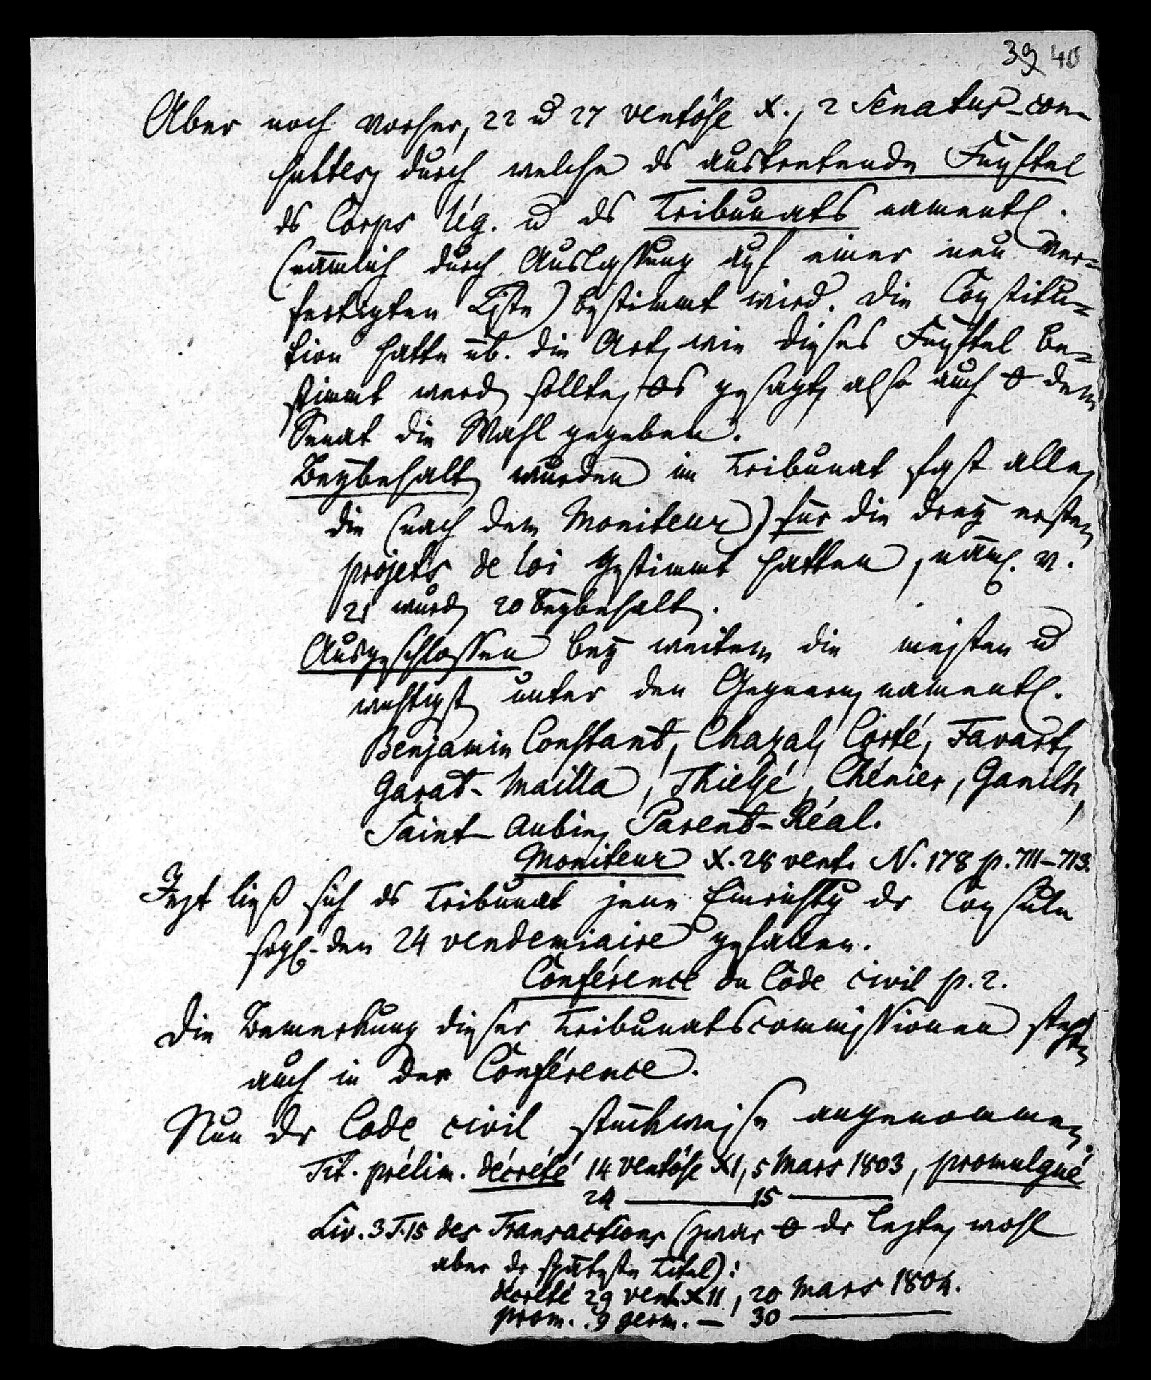 39 40
Aber noch vorher, 22 u 27 ventôse X., 2 Senatus-con-
sultes, durch welche ds austretende Fünftel
ds Corps lég. u ds Tribunats namentl.
(nämlich durch Auslassung auf einer neu ver-
fertigten Liste) bestimmt wird. Die Constitu-
tion hatte üb. die Art, wie dieses Fünftel be-
stimmt werd sollte, gesagt, also auch dem
Senat die Wahl gegeben.
Beybehalt wurden im Tribunat fast alle,
die (nach dem Moniteur) für die drey ersten
projets de loi gestimmt hatten, näml. v.
21 wurd 20 beybehalt.
Ausgeschlossen bey weitem die meisten u
wichtigst unter den Gegnern, namentl.
Benjamin Constant, Chazal, Favart,
Garat-Mailla, Thiessé, Chénier, Ganilh,
Saint-Aubin, Parent-Réal.
Moniteur X. 28 vent. N. 178 p. 711–713.
Jezt ließ sich ds Tribunat jene Einrichtg der Consuln
den 24 vendemiaire gefallen.
Conférence du Code civil p. 2.
Die Bemerkung dieser Tribunatscommissionen stehn
auch in der Conférence.
Nun dr Code civil stückweise angenommen.
Tit. prélim. décrété 14 ventôse XI, 5 Mars 1803, promulgué
24 — 15 —
Liv. 3 T. 15 des Transactions (zwar dr lezte, wohl
aber dr späteste Titel):
décrété 29 vent. XII, 20 Mars 1804.
prom. 9 germ. — 30 —